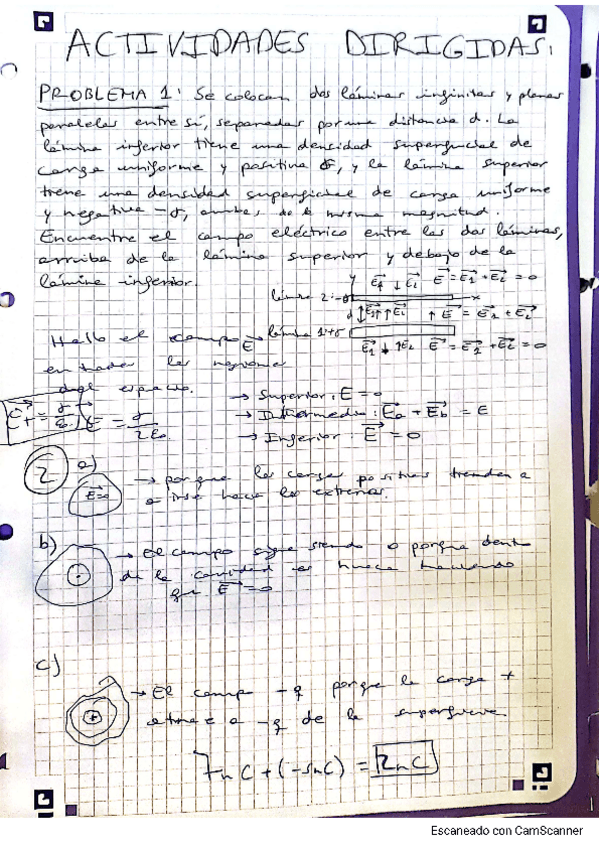 ACTIVIDADES DIRIGIDAS.
PROBLEMA 1: Se colocan dos láminas infinitas y planas
paralelas entre sí, separadas por una distancia d. La
lámina inferior tiene una densidad superficial de
carga uniforme y positiva σ, y la lámina superior
tiene una densidad superficial de carga uniforme
y negativa -σ, ambas de la misma magnitud.
Encuentre el campo eléctrico entre las dos láminas,
arriba de la lámina superior y debajo de la
lámina inferior.
y E1 ↓ E2 E = E1 + E2 = 0
lámina 2: -σ x
d ↑ E = E1 + E2
Hallo el campo E lámina 1: +σ
E1 ↓ ↑E2 E = E1 + E2 = 0
en todas las regiones
del espacio.
→ Superior: E = 0
E = σ/2ε0 → Intermedia: Ea + Eb = E
→ Inferior: E = 0
2 a) → porque las cargas positivas tienden a
E=0 irse hacia los extremos.
b) → El campo sigue siendo 0 porque dentro
de la cavidad es hueca haciendo
que E = 0
c)
→ El campo -q porque la carga +
atrae a -q de la superficie.
7nC + (-5nC) = 2nC
Escaneado con CamScanner